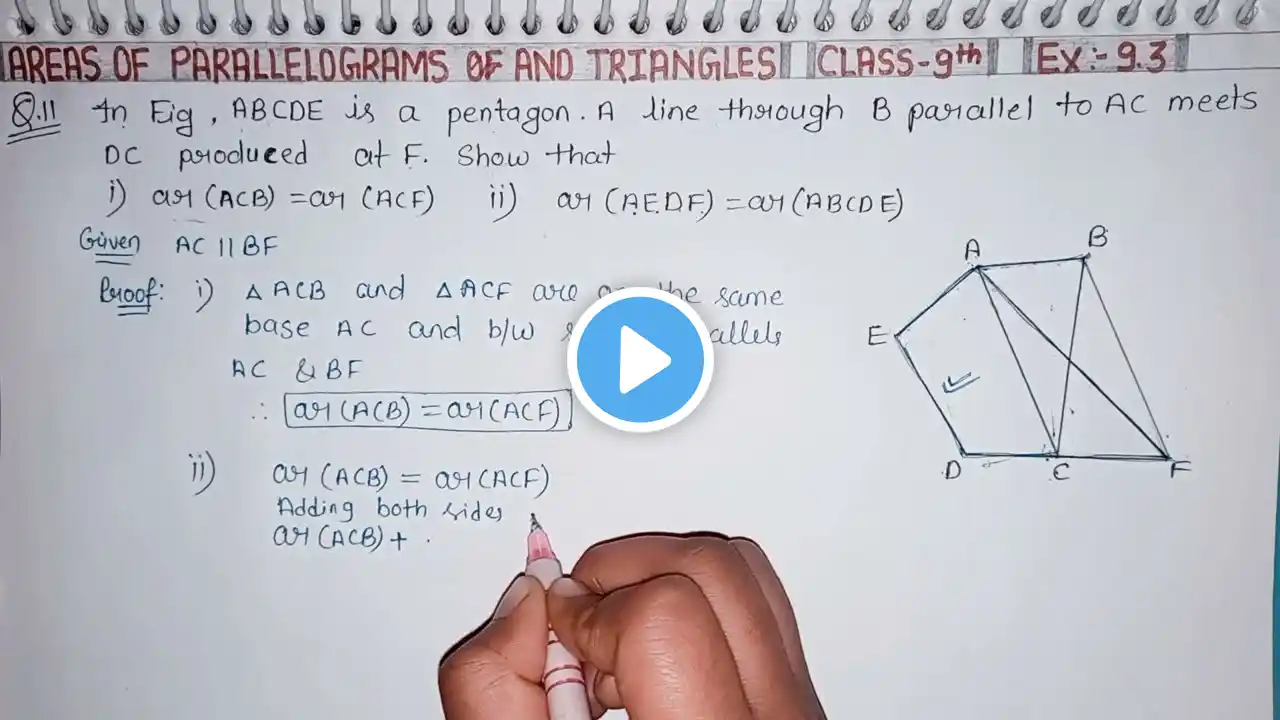 AREAS OF PARALLELOGRAMS OF AND TRIANGLES CLASS-9th Ex:- 9.3
Q.11 In Fig, ABCDE is a pentagon. A line through B parallel to AC meets
DC produced at F. Show that
i) ar (ACB) = ar (ACF) ii) ar (AEDF) = ar (ABCDE)
Given AC || BF
Proof: i) △ ACB and △ ACF are the same
base AC and b/w
AC & BF
∴ ar (ACB) = ar (ACF)
ii) ar (ACB) = ar (ACF)
Adding both sides
ar (ACB) +
A
B
E
D
C
F